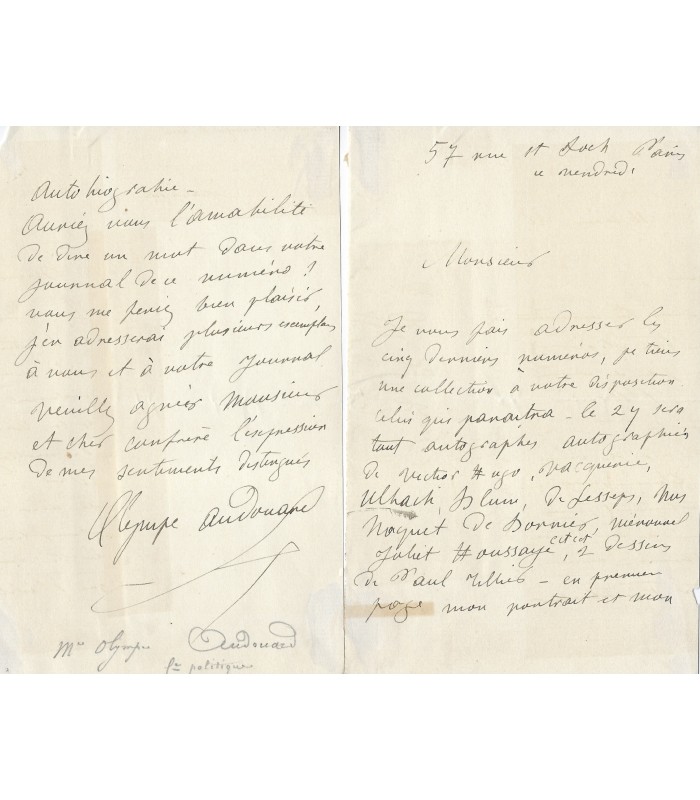 57 rue St Roch Paris
ce vendredi
Monsieur
Je vous fais adresser les
cinq derniers numéros, je tiens
une collection à votre disposition
Celui qui paraitra le 2 y sera
tout autographes autographiés
de Victor Hugo, Vacquerie,
Ulbach, Blum, de Lesseps, Mrs
Naquet de Bornier,
Juliet Houssaye etc etc, 2 dessins
de Paul – en premier
page mon portrait et mon
autobiographie –
Auriez vous l'amabilité
de dire un mot dans votre
journal de ce numéro ?
vous me feriez bien plaisir,
j'en adresserai plusieurs exemplaires
à vous et à votre journal
Veuillez agréer Monsieur
et cher confrère l'expression
de mes sentiments distingués
Olympe Audouard
Me Olympe Audouard
politique